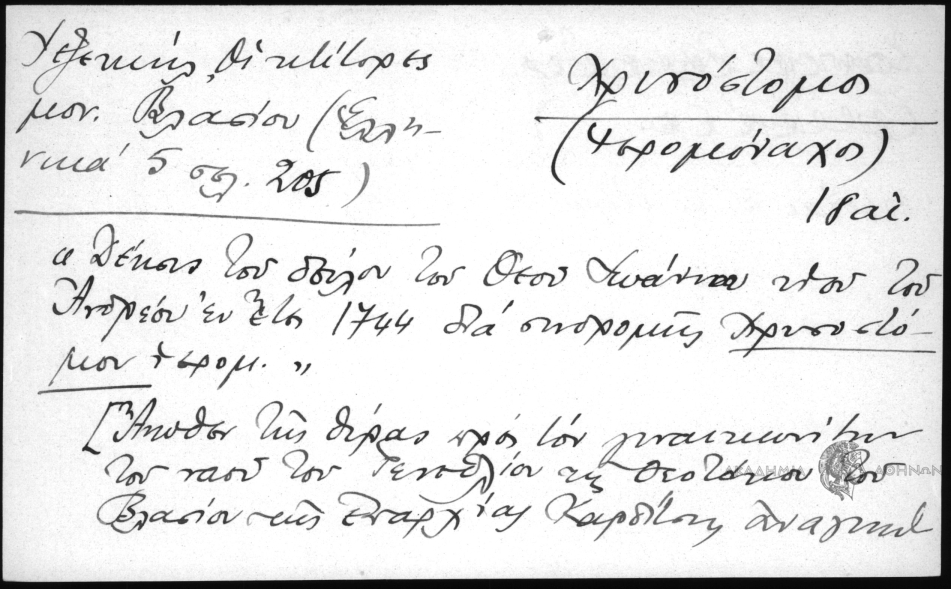 Υεζεκιήλ, Οἱ κτίτορες
μον. Βλασίου (Ἑλλη-
νικά 5 σελ. 205)
Χρυσόστομος
(Ἱερομόναχος)
18 αἰ.
"Δέησις τοῦ δούλου τοῦ Θεοῦ Ἰωάννου υἱοῦ τοῦ
Ἀνδρέου ἐν ἔτει 1744 διά συνδρομῆς Χρυσοστό-
μου ἱερομ."
[Ἄνωθεν τῆς θύρας πρός τόν γυναικωνίτην
τοῦ ναοῦ τοῦ Γενεσίου τῆς Θεοτόκου τοῦ
Βλασίου τῆς ἐπαρχίας Καρδίτσης
ΑΚΑΔΗΜΙΑ ΑΘΗΝΩΝ